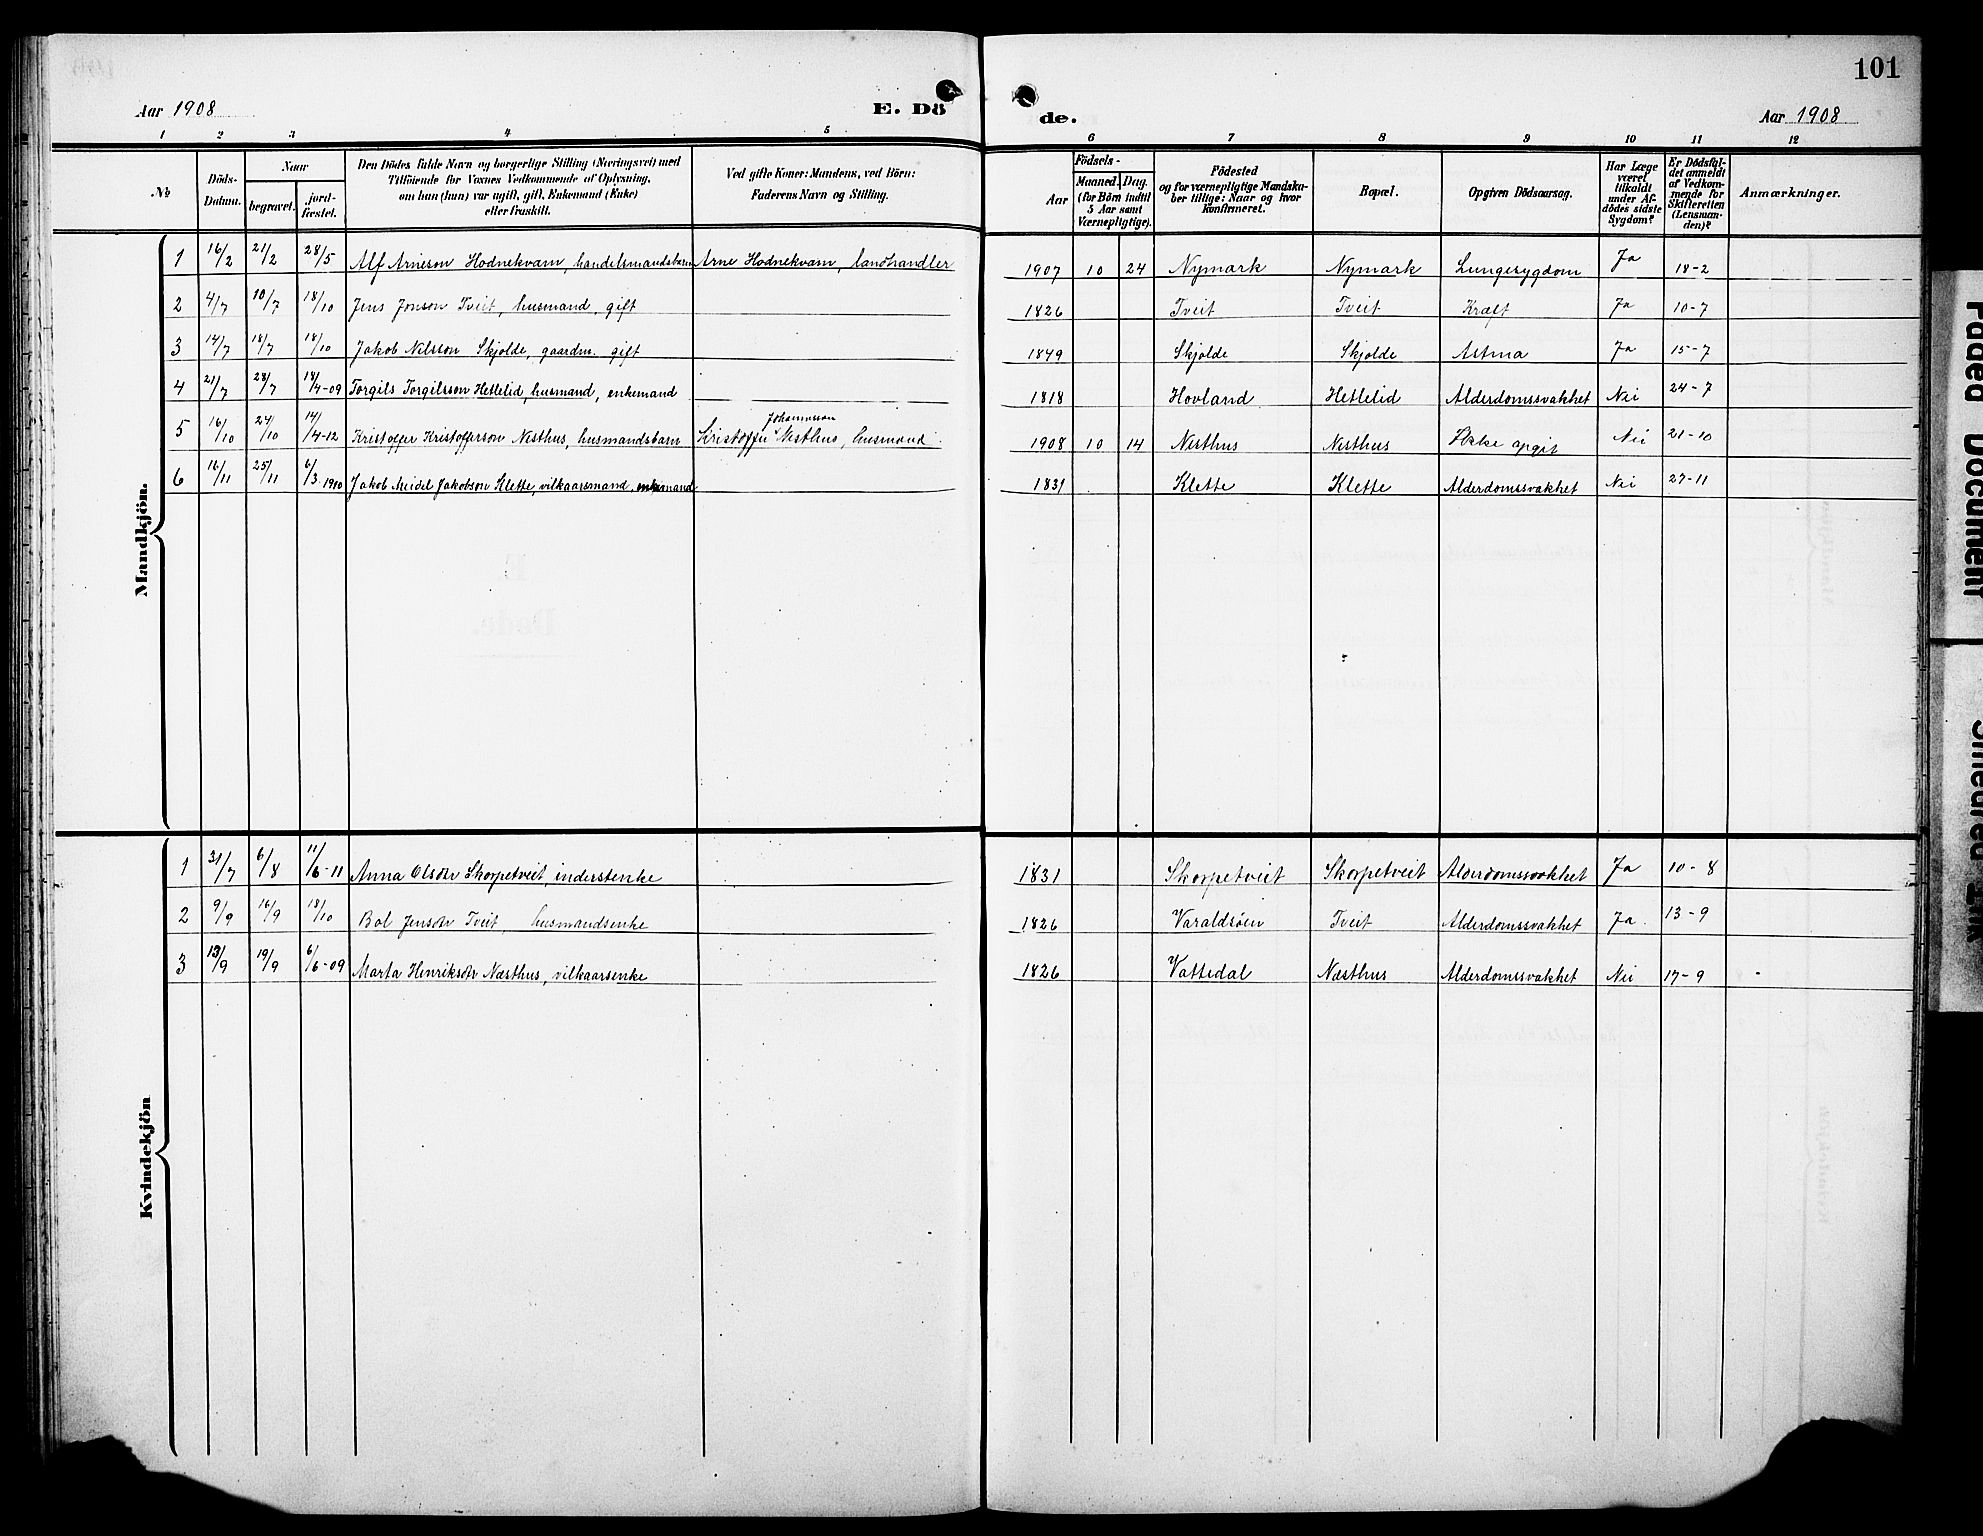 101
Aar 1908 E. Dö
de. Aar 1908
1 2 3 4 5 6 7 8 9 10 11 12
No
Döds-
Datum.
Naar
begravet.
jord-
fæstet.
Den Dödes fulde Navn og borgerlige Stilling (Næringsvei) med
Tilföiende for Voxnes Vedkommende af Oplysning,
om han (hun) var ugift, gift, Enkemand (Enke)
eller fraskilt.
Ved gifte Koner: Mandens, ved Börn:
Faderens Navn og Stilling.
Födsels-
Aar
Maaned. Dag.
(for Börn indtil
5 Aar samt
Værnepligtige).
Födested
og for værnepligtige Mandska-
ber tillige: Naar og hvor
Konfirmeret.
Bopæl.
Opgiven Dödsaarsag.
Har Læge
været
tilkaldt
under Af-
dödes sidste
Sygdom?
Er Dödsfal-
det anmeldt
af Vedkom-
mende for
Skifteretten
(Lensman-
den)?
Anmærkninger.
Mandkjön.
1 16/2 21/2 28/5 Alf Arneson Hodnekvam, handelsmandsbarn Arne Hodnekvam, landhandler 1907 10 24 Nymark Nymark Lungesygdom Ja 18-2
2 4/7 10/7 18/10 Jens Jonson Tveit, husmand, gift 1826 Tveit Tveit Kræft Ja 10-7
3 14/7 18/7 18/10 Jakob Nilsson Skjolde, gaardm. gift 1849 Skjolde Skjolde Astma Ja 15-7
4 21/7 28/7 18/4-09 Torgils Torgilsson Hetlelid, husmand, enkemand 1818 Hovland Hetlelid Alderdomssvakhet Nei 24-7
Johannesson
5 16/10 24/10 14/4-12 Kristoffer Kristofferson Nesthus, husmandsbarn Kristoffer Nesthus, husmand 1908 10 14 Nesthus Nesthus Ikke opgit Nei 21-10
6 16/11 25/11 6/3 1910 Jakob Meidel Jakobson Klette, vilkaarsmand, enkemand 1831 Klette Klette Alderdomssvakhet Nei 27-11
Kvindekjön
1 31/7 6/8 11/6-11 Anna Olsdtr Skorpetveit, inderstenke 1831 Skorpetveit Skorpetveit Alderdomssvakhet Ja 10-8
2 9/9 16/9 18/10 Bol Jensdtr Tveit, husmandsenke 1826 Varaldsöen Tveit Alderdomssvakhet Ja 13-9
3 13/9 19/9 6/6-09 Marta Henriksdtr Næsthus, vilkaarsenke 1826 Vattedal Næsthus Alderdomssvakhet Nei 17-9
Faded Document